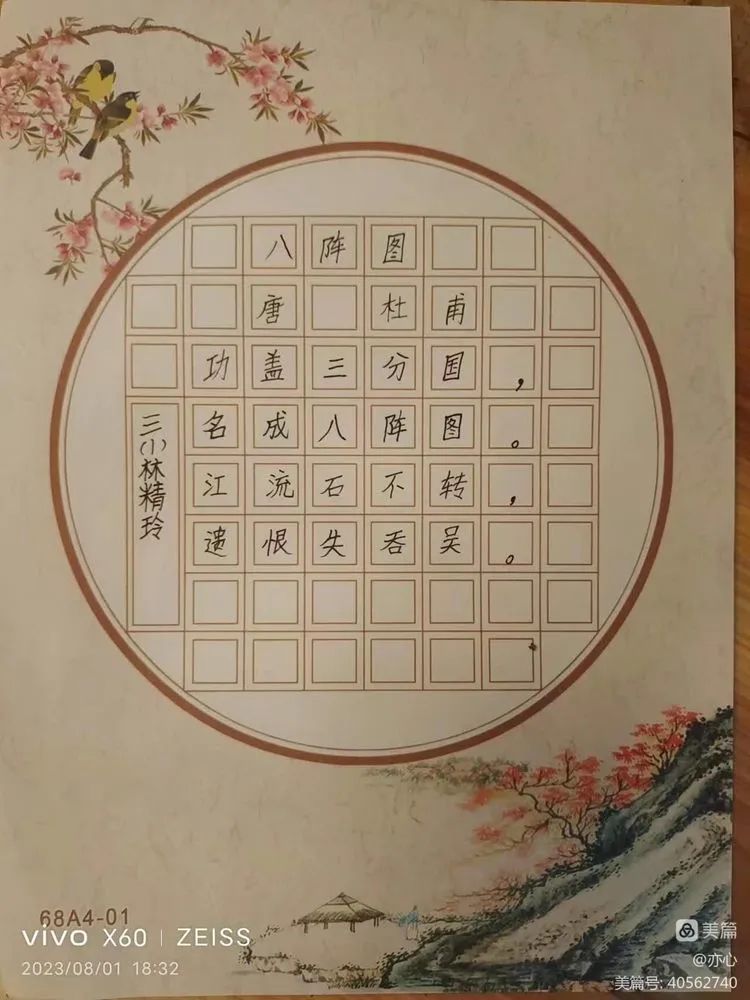 八阵图
唐 杜甫
功盖三分国，
名成八阵图。
江流石不转，
遗恨失吞吴。
三(1)林精玲
68A4-01
vivo X60 | ZEISS
2023/08/01 18:32
美篇
@亦心
美篇号: 40562740